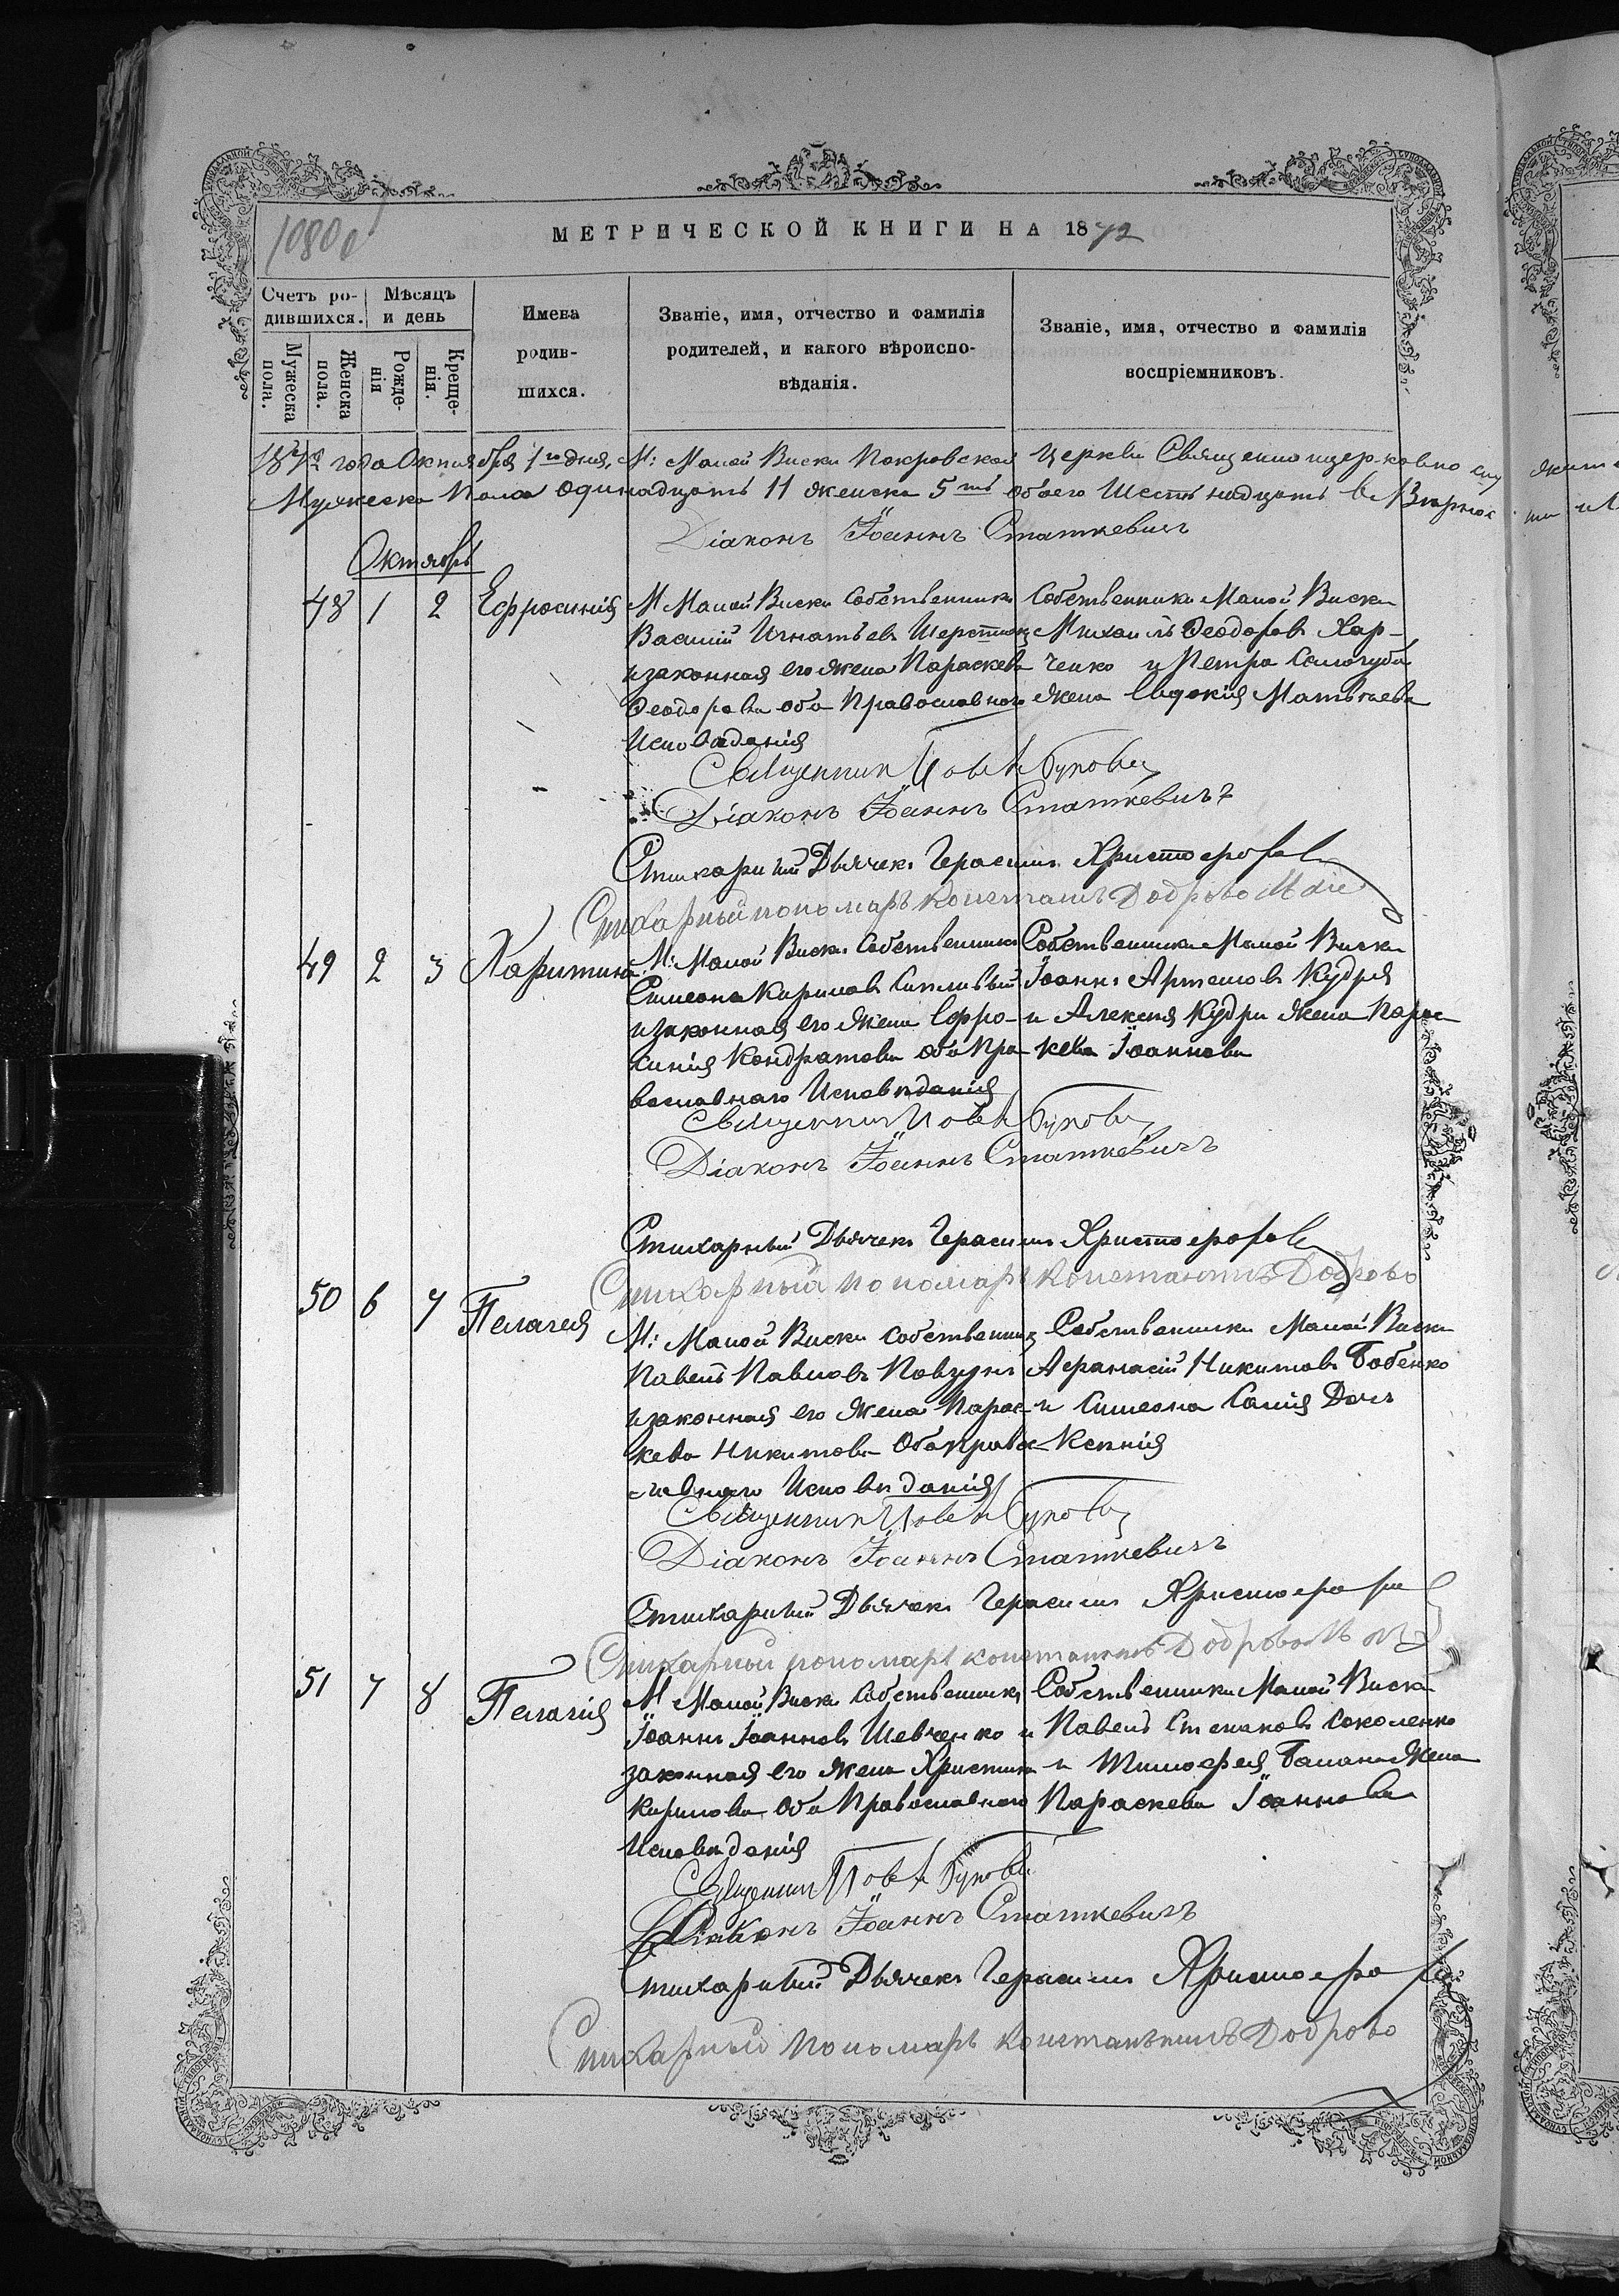 1080
МЕТРИЧЕСКОЙ КНИГИ НА 1872
Счетъ ро-
дившихся.
Мѣсяцъ
и день
Мужеска пола.
Женска пола.
Рожде-
нія
Креще-
нія.
Имена
родив-
шихся.
Званіе, имя, отчество и фамилія
родителей, и какого вѣроиспо-
вѣданія.
Званіе, имя, отчество и фамилія
воспріемниковъ.
1872 года Октября 1го дня, М: Малой Виски Покровской Церкви Священноцерковно
Мужеска Пола одинадцать 11 женска 5ть обоего Шестнадцать
Діаконъ Іоаннъ Статкевичъ
Октябрь
48 1 2 Ефросинія
М Малой Виски Собственникъ
Василій Игнатьевъ
и законная его жена Параскева
Феодорова оба Православного
Исповѣданія
Собственники Малой Виски
Михаилъ Феодоровъ Хар-
ченко и Петра Сологуба
жена Евдокія Матвѣева
Священникъ
Діаконъ Іоаннъ Статкевичъ
Стихарный Дьячекъ Герасимъ Христофоровъ
Стихарный пономарь Константинъ
49 2 3 Харитина
М: Малой Виски Собственникъ
Симеонъ Кириловъ
и законная его жена Ефро-
синія Кондратова оба Пра-
вославнаго Исповѣданія
Собственники Малой Виски
Іоаннъ Артемовъ Кудря
и Алексія Кудри жена Парас-
кева Іоаннова
Священникъ
Діаконъ Іоаннъ Статкевичъ
Стихарный Дьячекъ Герасимъ Христофоровъ
Стихарный пономарь Константинъ Доброво
50 6 7 Пелагея
М: Малой Виски Собственникъ
Павелъ Павловъ Повзунъ
и законная его жена Парас-
кева Никитова Оба правос-
лавнаго Исповѣданія
Собственники Малой Виски
Афанасій Никитовъ Бабенко
и Симеона Дочь
Ксенія
Священникъ
Діаконъ Іоаннъ Статкевичъ
Стихарный Дьячекъ Герасимъ Христофоровъ
Стихарный пономарь Константинъ
51 7 8 Пелагія
М Малой Виски Собственникъ
Іоаннъ Іоанновъ Шевченко и
законная его жена Христина
Кирилова Оба Православнаго
Исповѣданія
Собственники Малой Виски
Павелъ Степановъ Соколенко
и Тимофея Балана жена
Параскева Іоаннова
Священникъ
Діаконъ Іоаннъ Статкевичъ
Стихарный Дьячекъ Герасимъ Христофоровъ
Стихарный Пономарь Константинъ Доброво